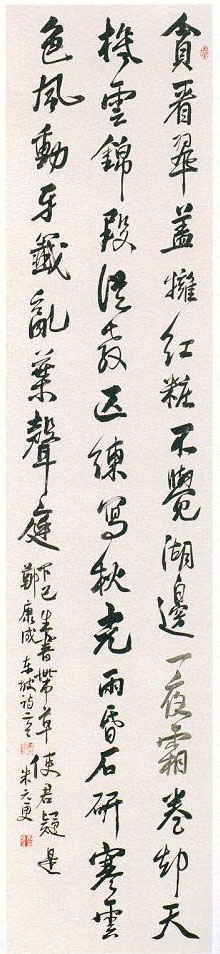 貪看翠蓋擁紅粧不覺湖邊一夜霜卷却天
機雲錦段從教匹練寫秋光雨昏石研寒雲
色風動牙籤亂葉聲庭下已生書帶草使君疑是
鄭康成 东坡詩二首 朱元更